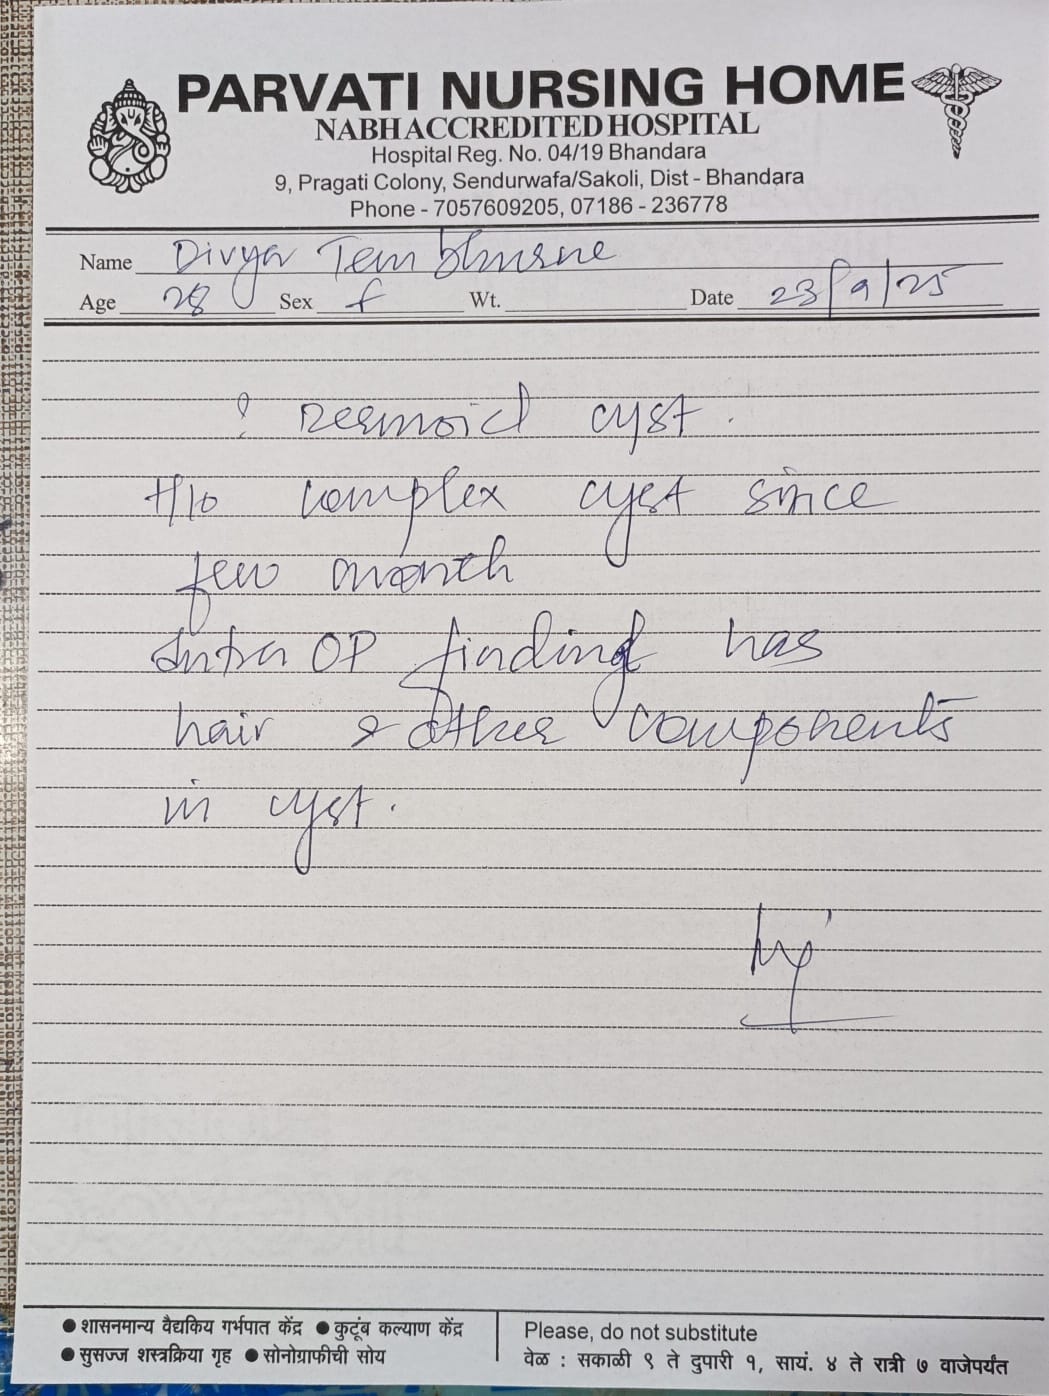 PARVATI NURSING HOME
NABH ACCREDITED HOSPITAL
Hospital Reg. No. 04/19 Bhandara
9, Pragati Colony, Sendurwafa/Sakoli, Dist - Bhandara
Phone - 7057609205, 07186 - 236778
Name Divya Tembhurne
Age 28 Sex f Wt. Date 23/9/25
? Dermoid cyst.
H/o complex cyst since
few month
Intra OP finding has
hair & other components
in cyst.
● शासनमान्य वैद्यकिय गर्भपात केंद्र ● कुटूंब कल्याण केंद्र
● सुसज्ज शस्त्रक्रिया गृह ● सोनोग्राफीची सोय
Please, do not substitute
वेळ : सकाळी ९ ते दुपारी १, सायं. ४ ते रात्री ७ वाजेपर्यंत